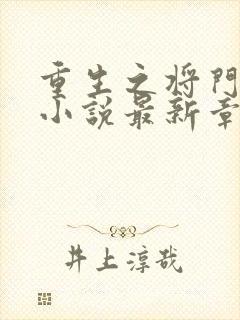 重生之将門
小説最新章
井上淳哉